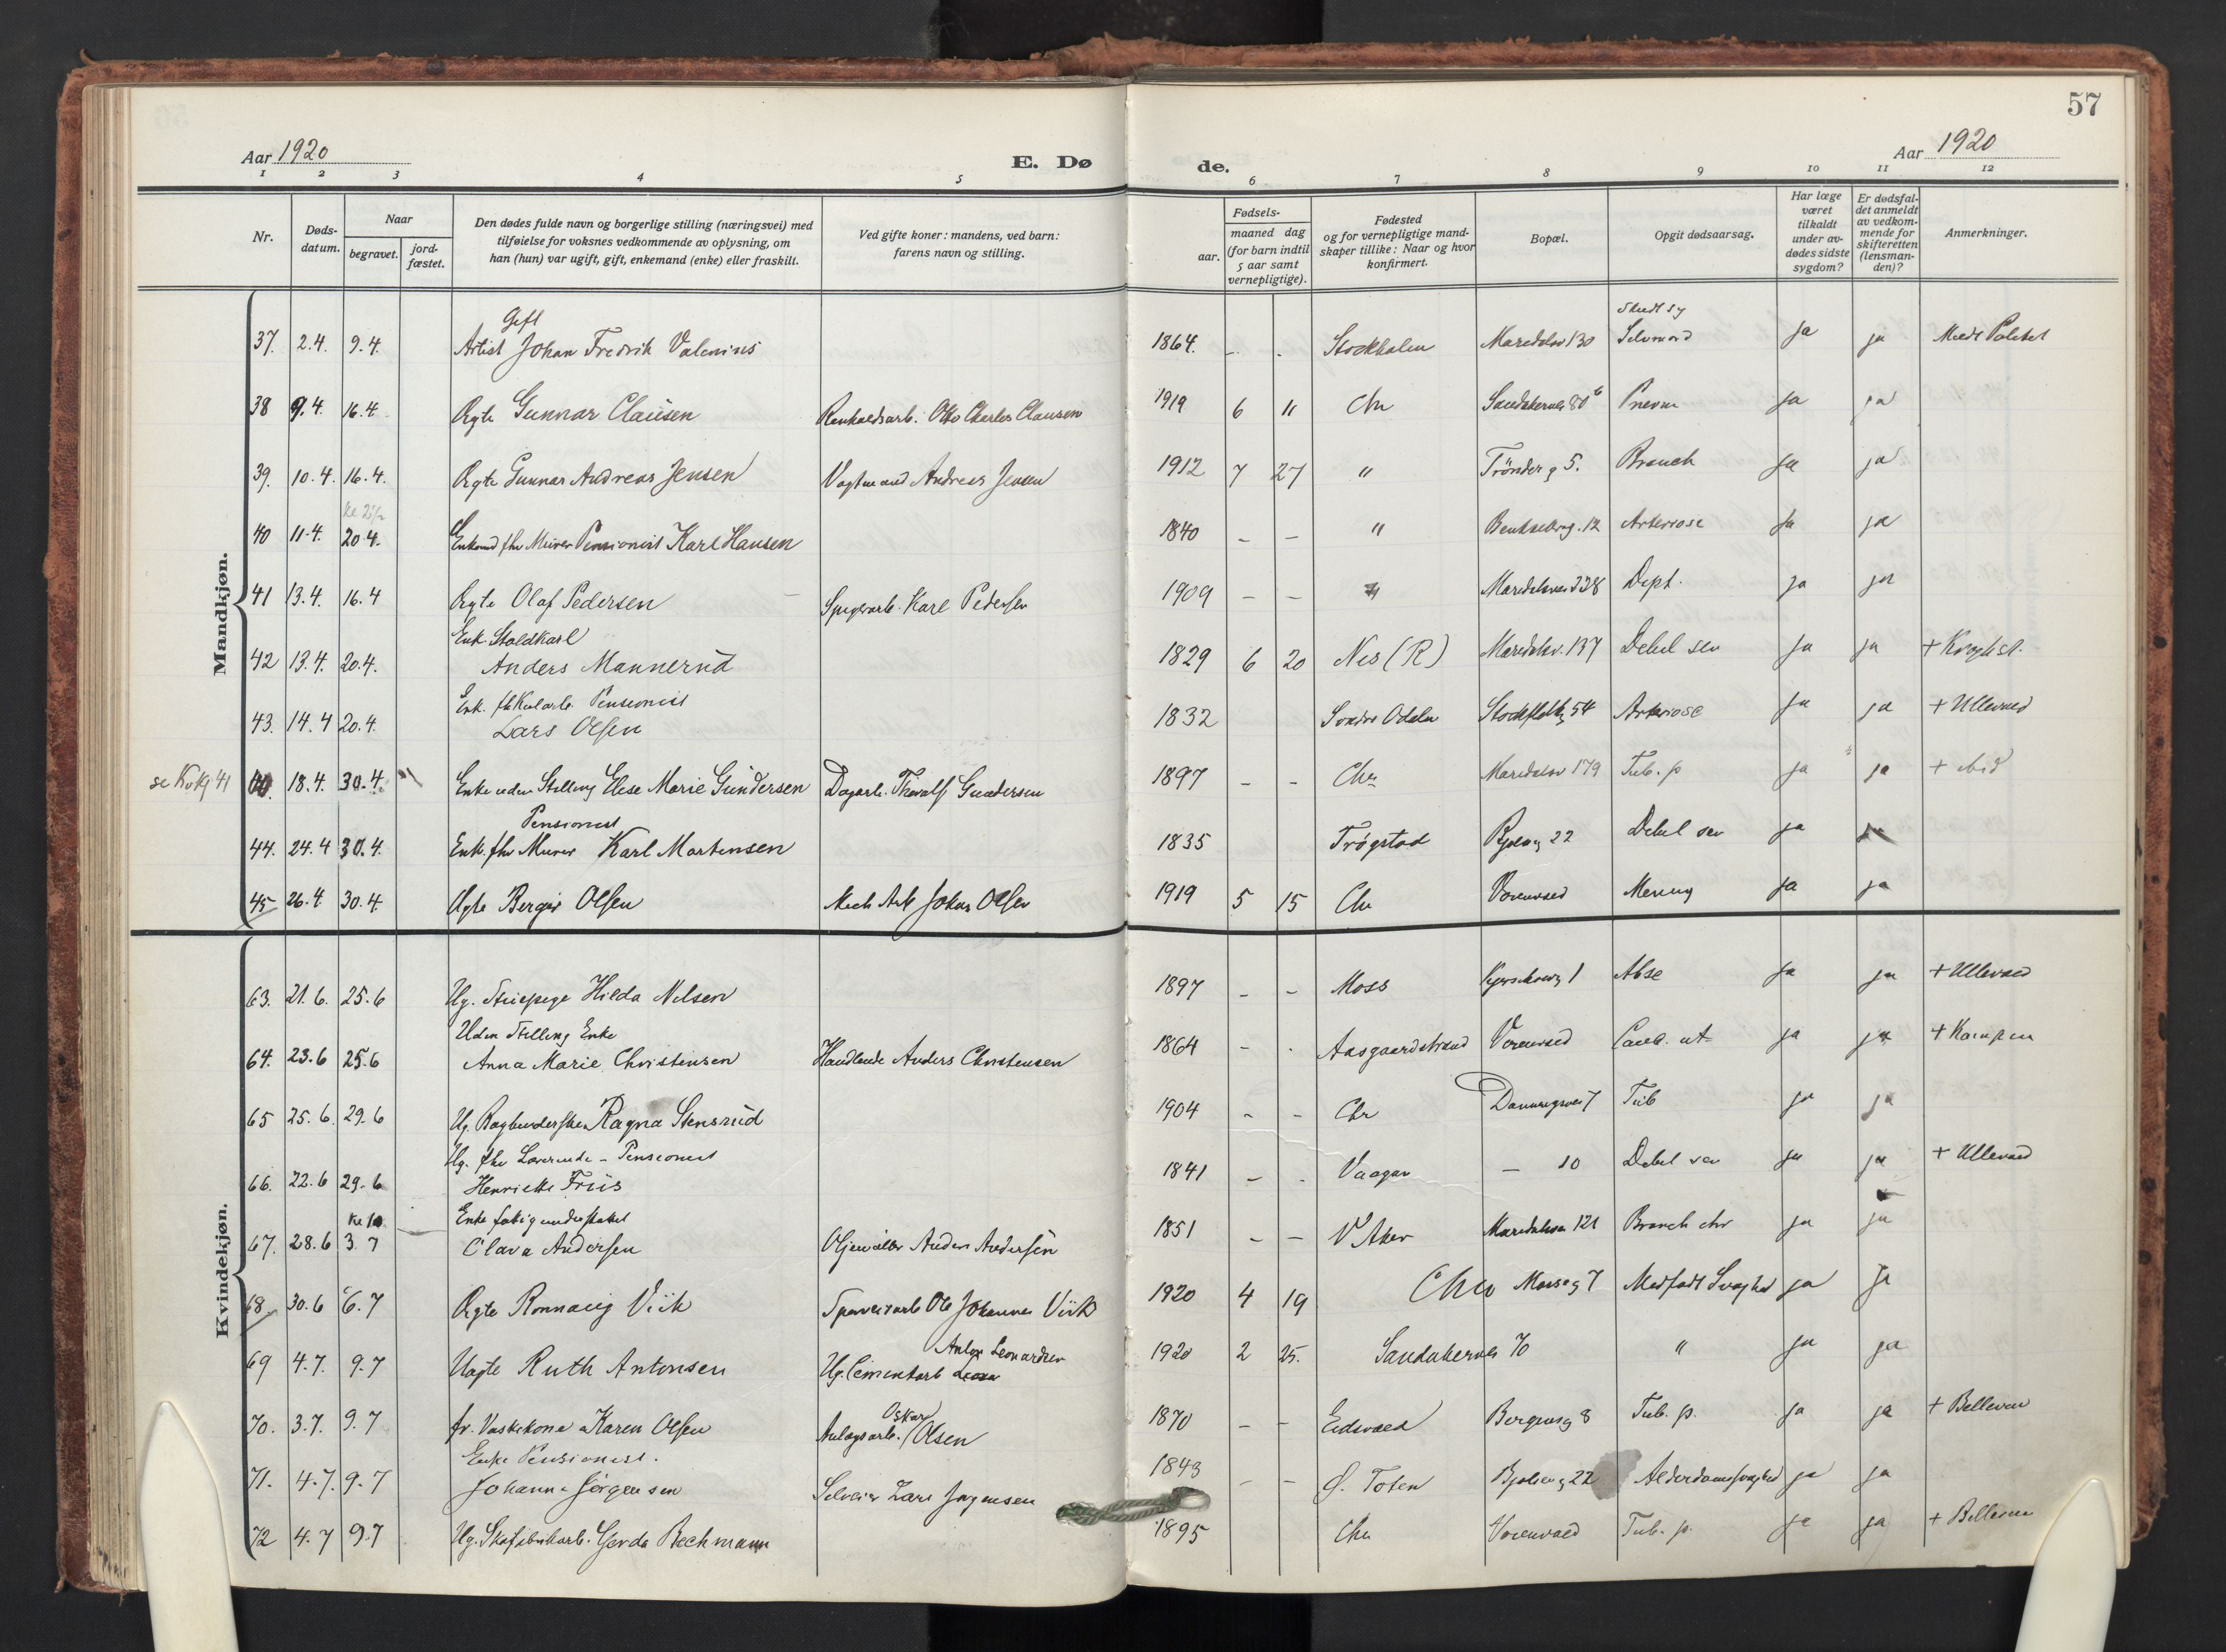 57
Aar 1920
E. Dø
de.
Aar 1920
1 2 3 4 5 6 7 8 9 10 11 12
Nr.
Døds-
datum.
Naar
begravet.
jord-
fæstet.
Den dødes fulde navn og borgerlige stilling (næringsvei) med
tilføielse for voksnes vedkommende av oplysning, om
han (hun) var ugift, gift, enkemand (enke) eller fraskilt.
Ved gifte koner: mandens, ved barn:
farens navn og stilling.
Fødsels-
aar.
maaned dag
(for barn indtil
5 aar samt
vernepligtige).
Fødested
og for vernepligtige mand-
skaper tillike: Naar og hvor
konfirmert.
Bopæl.
Opgit dødsaarsag.
Har læge
været
tilkaldt
under av-
dødes sidste
sygdom?
Er dødsfal-
det anmeldt
av vedkom-
mende for
skifteretten
(lensman-
den)?
Anmerkninger.
Mandkjøn.
Gift
37. 2.4. 9.4. Artist Johan Fredrik Valenius 1864. - . Stockholm Maridalsv 130 Selvmord ja ja
38 9.4. 16.4 Ægte Gunnar Clausen Renholdsarb. Otto Charles Clausen 1919 6 11 Chr Sandakerveien 80 b Pneum ja ja
39. 10.4. 16.4. Ægte Gunnar Andreas Jensen Vagtmand Andreas Jensen 1912 7 27 " Trönderg 5. Bronch ja ja
40 11.4. 20.4. Enkemd fhv Murer Pensionist Karl Hansen 1840 - - " 12 Arteriose ja ja
41 13.4. 16.4 Ægte Olaf Pedersen Karl Pedersen 1909 - - " Maridalsvei 228 Dipt. ja ja
Enk. Staldkarl
42 13.4. 20.4. Anders Mannerud 1829 6 20 Nes (R) Maridalsv. 137 Debil sen ja ja
Enk. Pensionist
43. 14.4 20.4. Lars Olsen 1832 Söndre Odalen 54 Arteriose ja ja + Ullevaal
se Kvkj 41 18.4. 30.4. Enke uden Stilling Elise Marie Gundersen Dagarb. Thoralf Gundersen 1897 - - Chr Maridalsv 179 Tub. p ja ja +
Pensionist
44. 24.4 30.4. Enk. fhv Murer Karl Martensen 1835 Trögstad 22 Debil sen ja
45 26.4 30.4. Ægte Birger Olsen Mech Arb Johan Olsen 1919 5 15 Chr Mening ja ja
Kvindekjøn.
63. 21.6. 25.6 Ug. Hilda Nilsen 1897 - - Moss 1 ja ja + Ullevaal
Uden Stilling Enke
64. 23.6 25.6 Anna Marie Christensen Handlende Anders Christensen 1864 - . Aasgaardstrand ja ja + Kampen
65 25.6. 29.6 Ug. Ragna Stensrud 1904 - - Chr 7 Tub ja ja
Ug. fhv Lærerinde - Pensionist
66. 22.6 29.6 Henriette Friis 1841 - . Vaagan — 10 Debil sen ja ja + Ullevaal
Enke fattigunderstøttet
67. 28.6 3.7 Olava Andersen Anders Andersen 1851 - - V Aker Maridalsv 121 Bronch chr ja ja
68. 30.6 6.7 Ægte Rönnaug Viik Sporveisarb Ole Johannes Viik 1920 4 19 Chr 7 Medfödt Svaghed ja ja
Anton Leonardsen
69 4.7. 9.7 Uægte Ruth Antonsen Ug. Cementarb 1920 2 25. Sandakerveien 70 " ja ja
Oskar
70. 3.7. 9.7 fr. Vaskekone Karen Olsen Anlægsarb. Olsen 1870 - - Eidsvold 8 Tub. p. ja ja +
Enke Pensionist.
71. 4.7. 9.7 Johanne Jörgensen Lars Jörgensen 1843 - - Ö. Toten 22 Alderdomssvaghed ja ja
72 4.7 9.7 Ug. Skofabrikarb. Gerda Bechmann 1895 Chr Tub. p. ja ja +